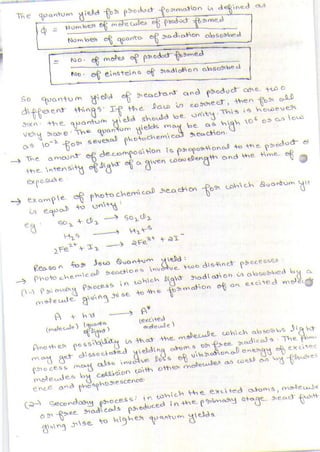 The quantum yield for product formation is defined as
ϕ = Number of molecules of product formed
Number of quanta of radiation absorbed
= No. of moles of product formed
No. of einsteins of radiation absorbed
So quantum yield of reactant and product are two
different things. If the law is correct, then for all
rxn the quantum yield should be unity. This is however
very rare. The quantum yields may be as high 10⁶ or as low
as 10⁻² for several photochemical reaction.
→ The amount of decomposition is proportional to the product of
the intensity of light of a given wavelength and the time of
exposure
→ Example of photochemical reaction for which quantum yie
is equal to unity:
eg: SO₂ + Cl₂ → SO₂Cl₂
H₂S → H₂ + S
2Fe²⁺ + I₂ → 2Fe³⁺ + 2I⁻
Reason for low Quantum yield:
→ Photochemical reactions involve two distinct processes:
(1-) Primary Process in which light radiation is absorbed by a
molecule giving rise to the formation of an excited molecule
A + hν → A*
(molecule) (quanta of light) (excited molecule)
Another possibility is that the molecule which absorbs light
may get dissociated yielding atoms or free radicals. The
process may also involve loss of vibrational energy of excited
molecules by collision with other molecules as well as by fluores
ence and phosphorescence
(2-) Secondary process: in which the excited atoms, molecule
or free radicals produced in the primary stage react furth
giving rise to higher quantum yields.